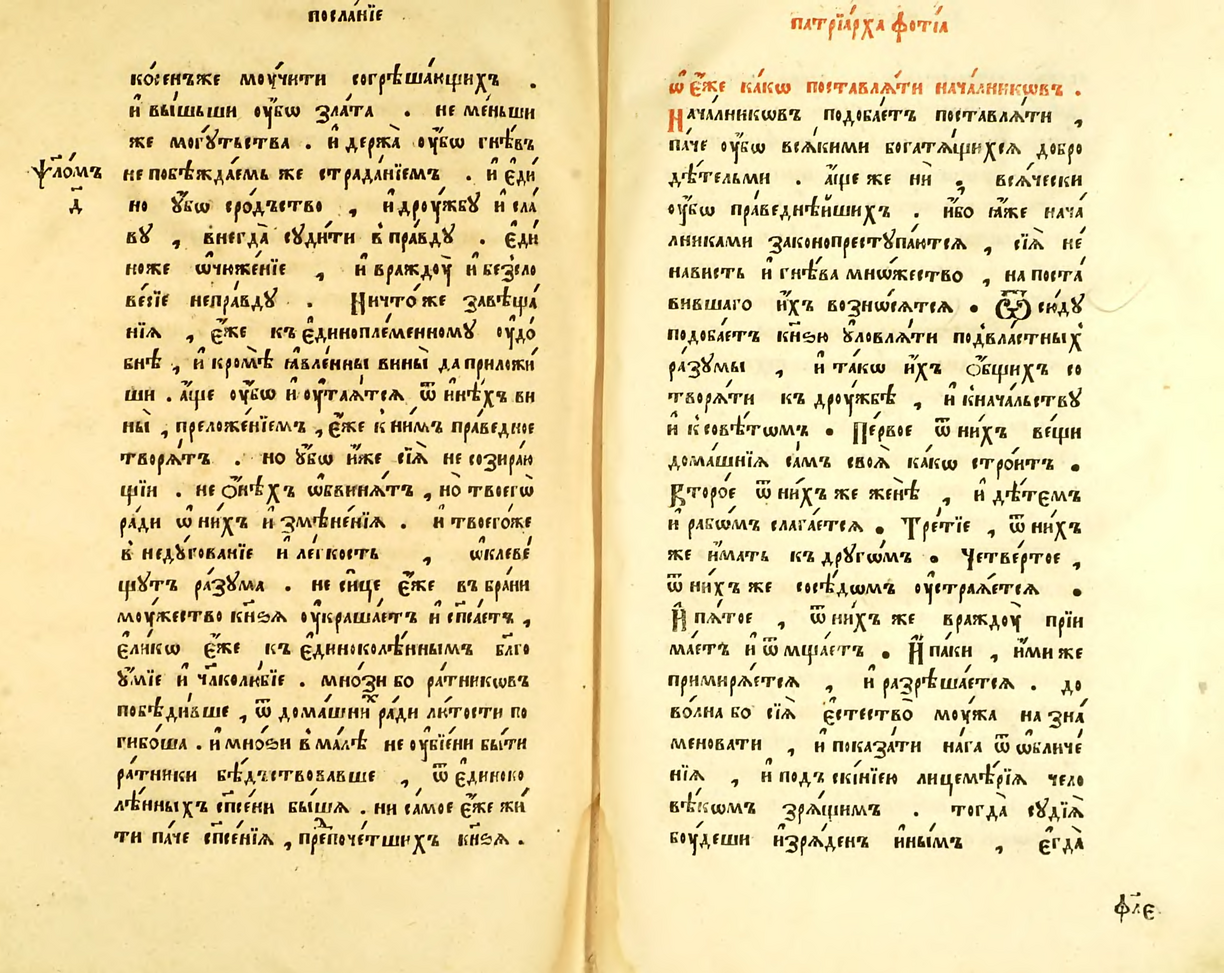 посла́нїе
ко́сенъже моу́чити согрѣша́ющихъ .
и҆ вы́шьши оу҆́бѡ зла́та . не ме́ньши
же могꙋ́тьства . и҆ держа̀ оу҆́бѡ гнѣ́въ
не побѣжда́емь же страда́нїемъ . и҆ є҆ди
но ᲂу҆́бѡ сро́дъство , и҆ дроу́жбꙋ и҆ сла́
вꙋ , внегда̀ сꙋди́ти в пра́вдꙋ . є҆ди́
ноже ѡ҆чюже́нїе , и҆ враждоу̀ и҆ безсло
ве́сїе непра́вдꙋ . Ничто́же завѣща́
нїѧ , є҆́же къ є҆диноплеменному оу҆до́
бнѣ , и҆ кромѣ̀ ꙗ҆вле́нны вины̀ да приложи́
ши . а҆́ще оу҆́бѡ и҆ оу҆таѧ́тсѧ ѿ и҆нѣ́хъ ви
ны̀ , преложе́нїемъ , є҆́же к ни́мъ пра́ведное
творѧ́тъ . но оу҆́бѡ и҆́же сїѧ̀ не созира́ю
щїи . не ѻ҆нѣ́хъ ѡ҆бвинѧ́тъ , но̀ твоегѡ̀
ра́ди ѡ҆ ни́хъ и҆ змѣне́нїѧ . и҆ твоего́же
в недꙋ́гованїе и҆ ле́гкость , ѡ҆клеве́
щꙋтъ ра́зꙋма . не си́це є҆́же въ бра́ни
моу́жество кн҃зѧ оу҆краша́етъ и҆ сп҃са́етъ ,
є҆ли́кѡ є҆́же къ є҆диноколѣ́ннымъ бл҃го
ꙋ҆́мїе и҆ чл҃колю́бїе . мно́зи бо ра́тникѡвъ
побѣди́вше , ѿ дома́шни́х ра́ди лю́тости по
ги́боша . и҆ мно́ѕи в ма́лѣ не оу҆бїе́ни бы́ти
ра́тники бѣ́дъствовавше , ѿ є҆диноко
лѣ́нныхъ сп҃се́ни бы́шѧ . ни са́мое є҆́же жи́
ти па́че сп҃се́нїѧ , пре́дпоче́тшихъ кн҃ѕѧ .
ѱало́мъ
д҃
патрїа́рха фо́тїа
ѡ҆ є҆́же ка́кѡ поставлѧ́ти нача́лникѡвъ .
Нача́лникѡвъ подоба́етъ поставлѧ́ти ,
па́че оу҆́бѡ всѧ́кими богатѧ́щихсѧ добро
дѣ́тельми . а҆́ще же ни , всѧ́чески
оу҆́бѡ пра́веднѣ́йшихъ . и҆́бо ꙗ҆́же нача́
лниками законопрестꙋпа́ютсѧ , сїѧ̀ не́
нависть и҆ гнѣ́ва мно́жество , на поста́
вившаго и҆́хъ возно́сѧтсѧ . Ѿ сю́дꙋ
подоба́етъ кн҃ѕю ꙋ҆ловлѧ́ти подвла́стныхъ
ра́зꙋмы , и҆ та́кѡ и҆́хъ ѻ҆́бщихъ со
творѧ́ти къ дроу́жбѣ , и҆ кнача́льствꙋ
и҆ к совѣ́тѡмъ . Пе́рвое ѿ ни́хъ ве́щи
дома́шнїѧ са́мъ своѧ̀ ка́кѡ стро́итъ .
Второ́е ѿ ни́хъ же женѣ̀ , и҆ дѣ́темъ
и҆ рабѡ́мъ слага́етсѧ . Тре́тїе , ѿ ни́хъ
же и҆́мать къ дрꙋгѡ́мъ . Четве́ртое ,
ѿ ни́хъ же сосѣ́дѡмъ оу҆строѧ́етсѧ .
И҆ пѧ́тое , ѿ ни́хъ же враждоу̀ прїи
ма́етъ и҆ ѿ мща́етъ . И҆ па́ки , и҆́миже
примирѧ́етсѧ , и҆ разрѣша́етсѧ . до
во́лна бо сїѧ̀ є҆стество̀ моу́жа на зна́
меновати , и҆ показа́ти на́га ѿ ѡ҆бличе́
нїѧ , и҆ подъ скі́нїею лицемѣ́рїѧ чело
вѣ́кѡмъ зрѧ́щимъ . тогда̀ сꙋдїѧ̀
боу́деши и҆зрѧ́денъ и҆ны́мъ , є҆гда̀
ф҃ле